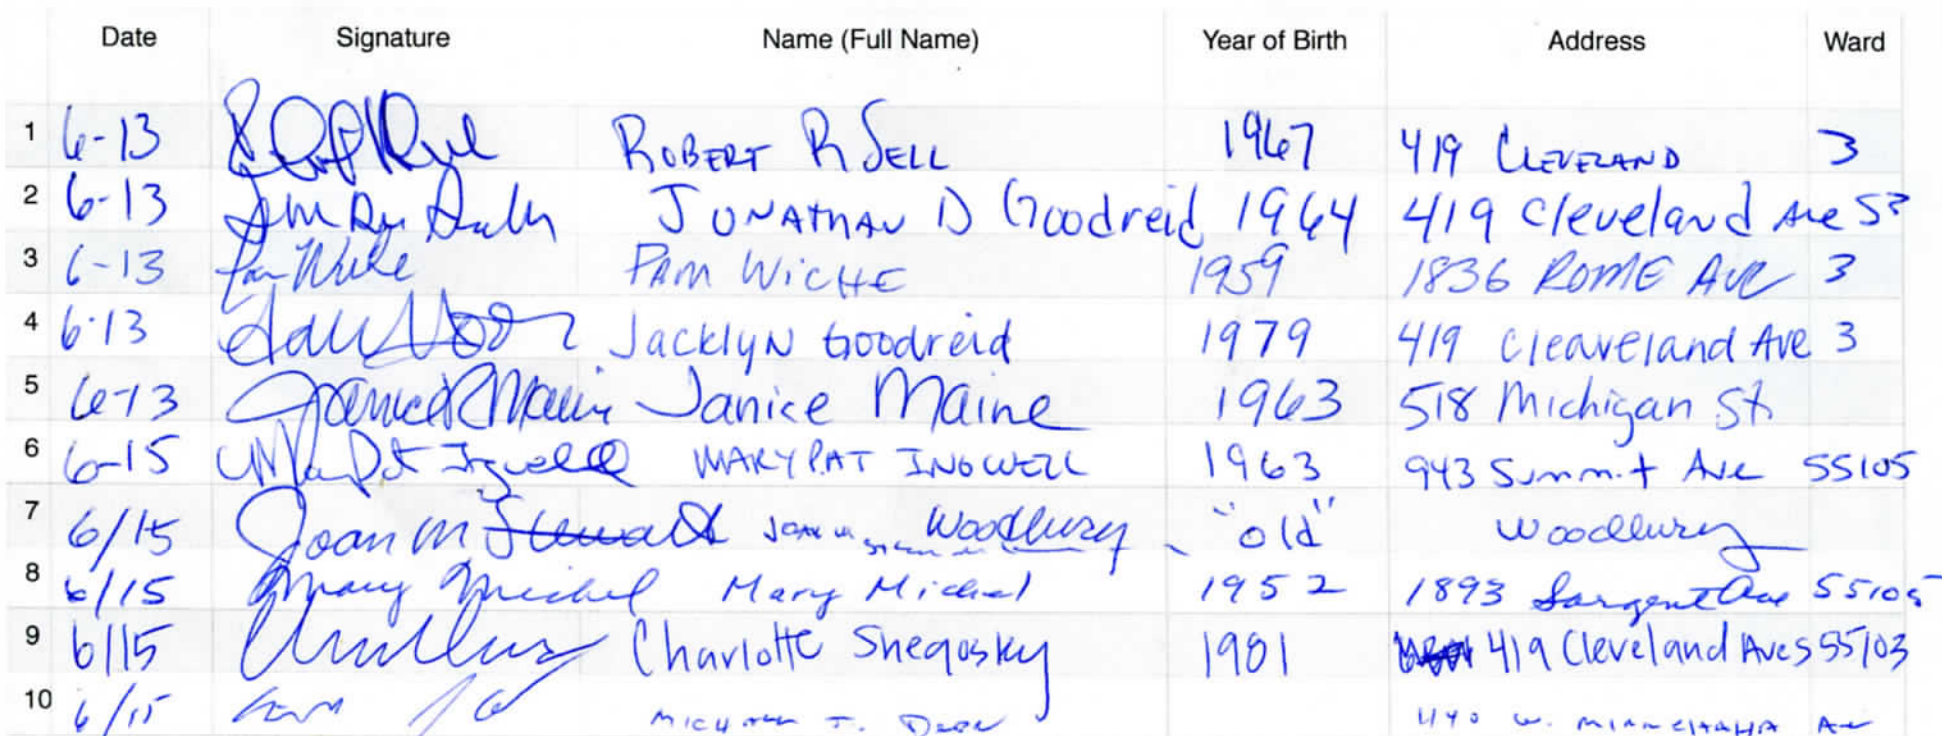 Date Signature Name (Full Name) Year of Birth Address Ward
1 6-13 ROBERT R SELL 1967 419 CLEVELAND 3
2 6-13 JONATHAN D Goodreid 1964 419 Cleveland Ave S 3
3 6-13 PAM WICHE 1959 1836 ROME AVE 3
4 6-13 JacklyN Goodreid 1979 419 Cleaveland Ave 3
5 6-13 Janice Maine Janice Maine 1963 518 Michigan St.
6 6-15 MARY PAT INGWELL 1963 943 Summit Ave 55105
7 6/15 Joan M Stewart Woodbury "old" Woodbury
8 6/15 Mary Michel Mary Michel 1952 1893 Sargent Ave 55105
9 6/15 Charlotte Shegosky 1981 419 Cleveland Ave S 55103
10 6/15 J. W. MINNEHAHA Ave